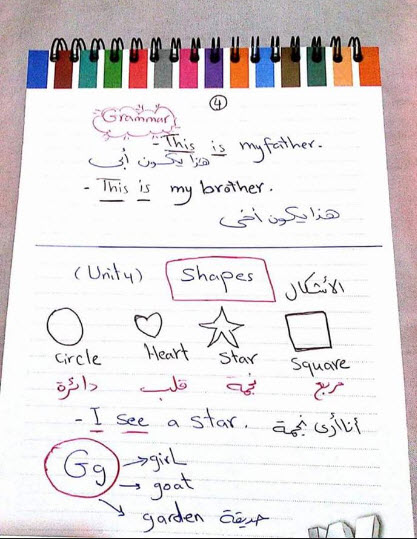 ④
Grammar
- This is my father.
هذا يكون أبي
- This is my brother.
هذا يكون أخي
(Unit4) Shapes الأشكال
Circle Heart Star Square
دائرة قلب نجمة مربع
- I see a star. أنا أرى نجمة
Gg → girl
→ goat
→ garden حديقة